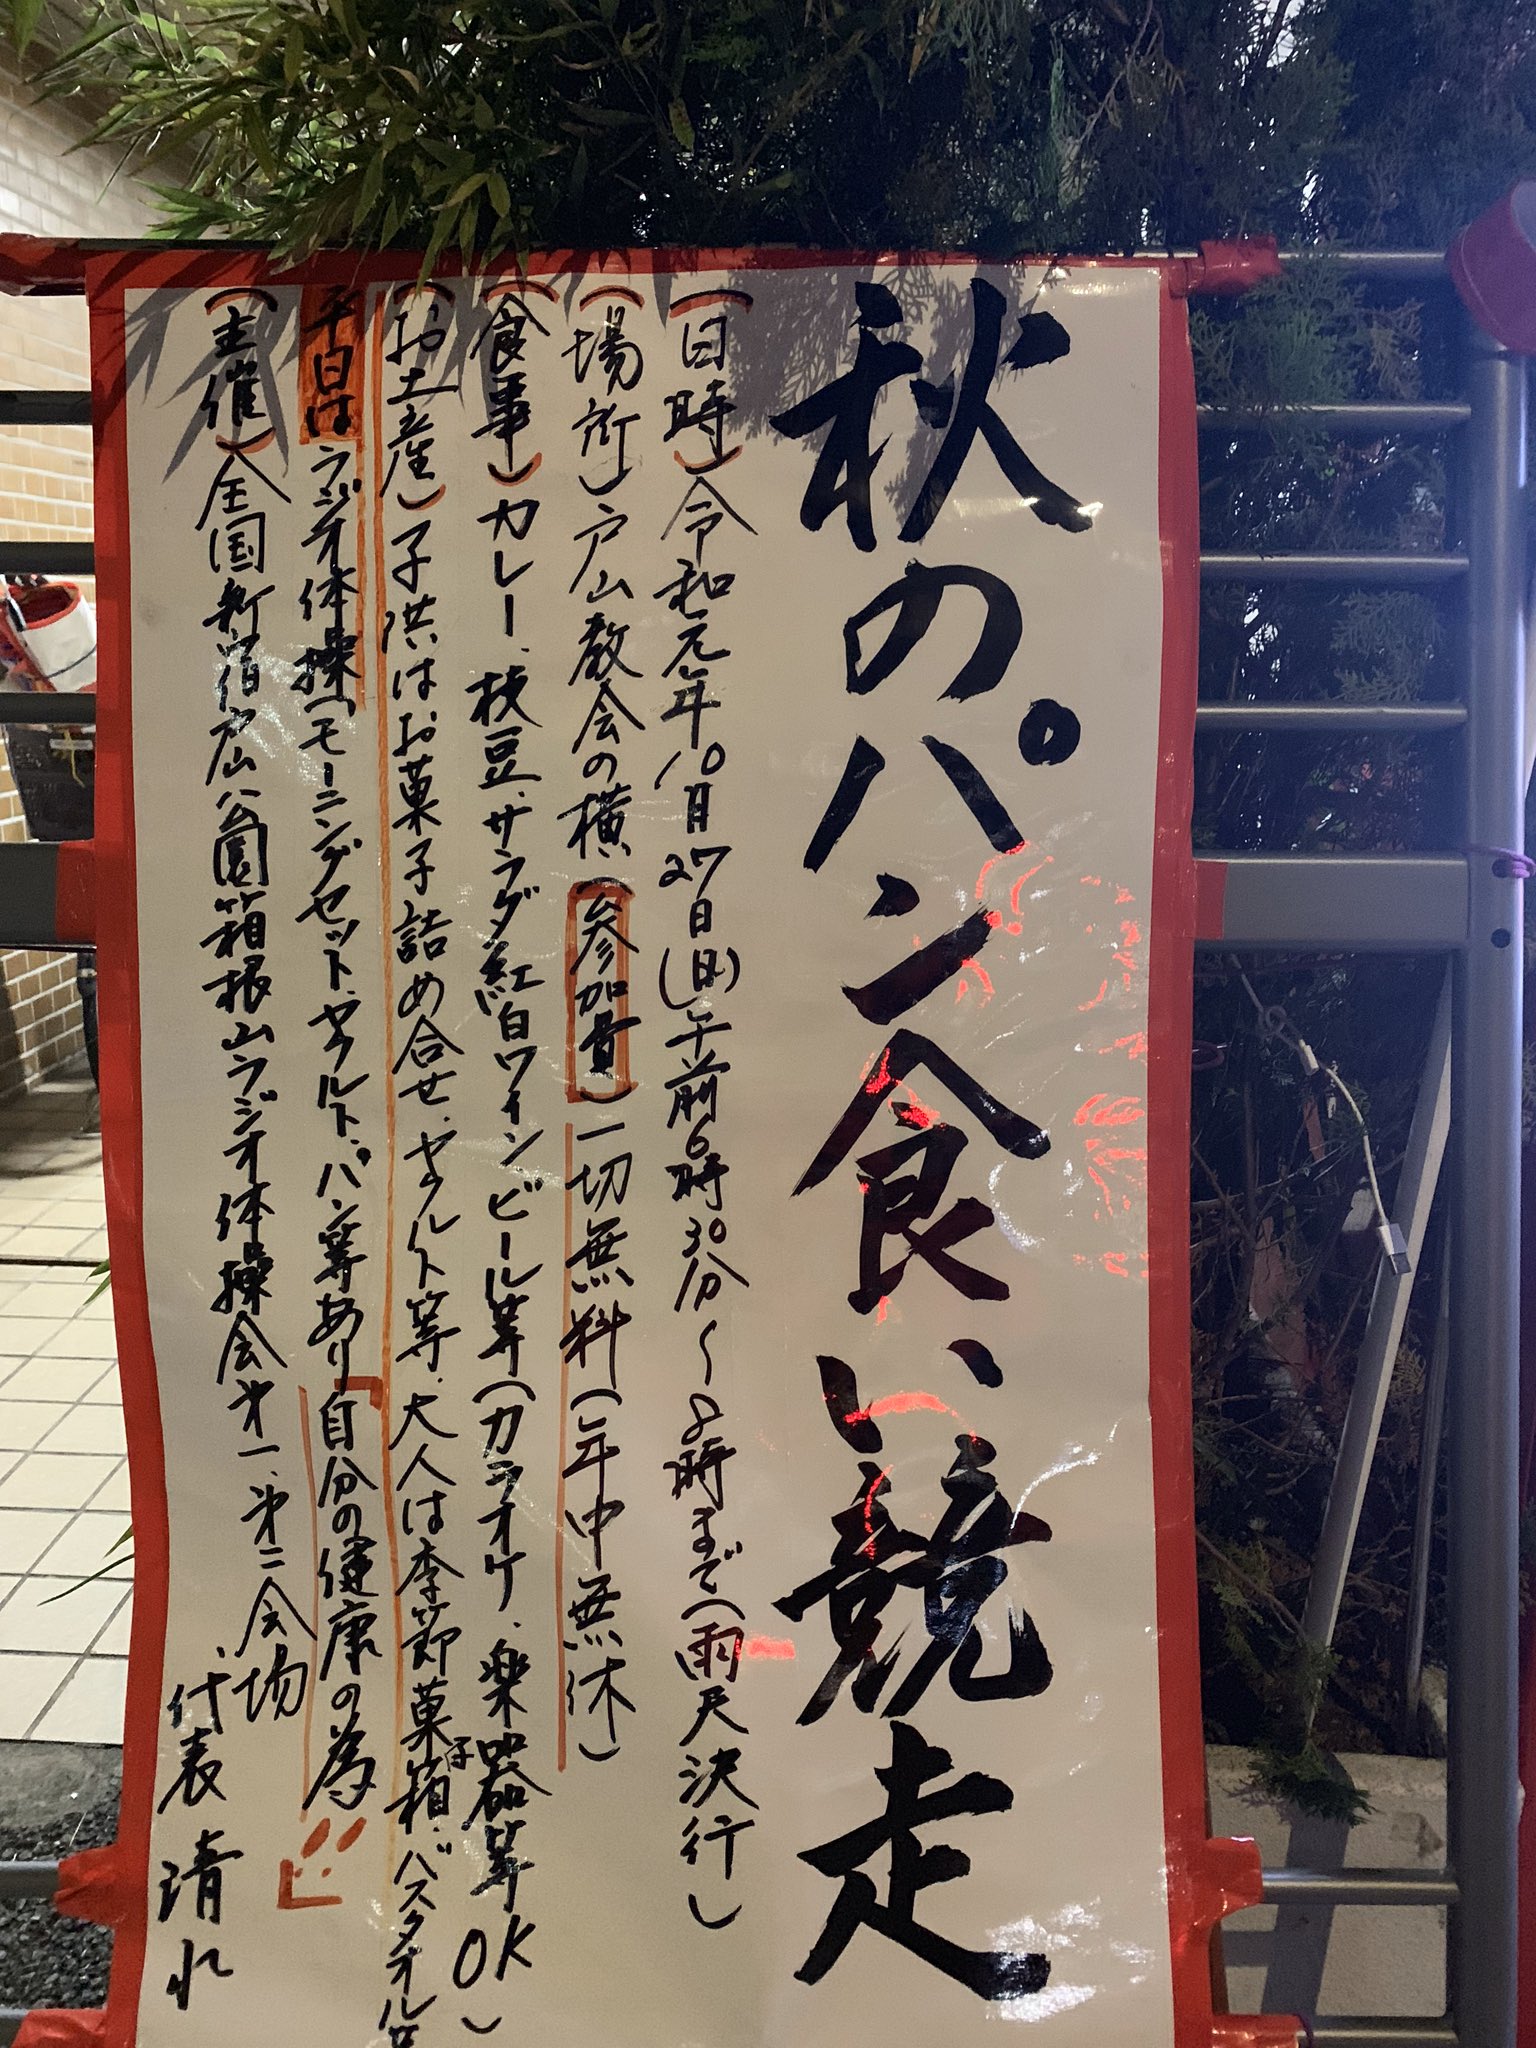 秋のパン食い競走
(日時)令和元年10月27日(日)午前6時30分〜8時まで(雨天決行)
(場所)戸山教会の横(参加費)一切無料(年中無休)
(食事)カレー、枝豆、サラダ、紅白ワイン、ビール等(カラオケ、楽器等OK)
(お土産)子供はお菓子詰め合せ、ヤクルト等、大人は季節菓子箱、バスタオル
平日はラジオ体操(モーニングセット、ヤクルト、パン等あり「自分の健康の為!!」
(主催)全国新宿戸山公園箱根山ラジオ体操会第一、第二会場、
代表 清水